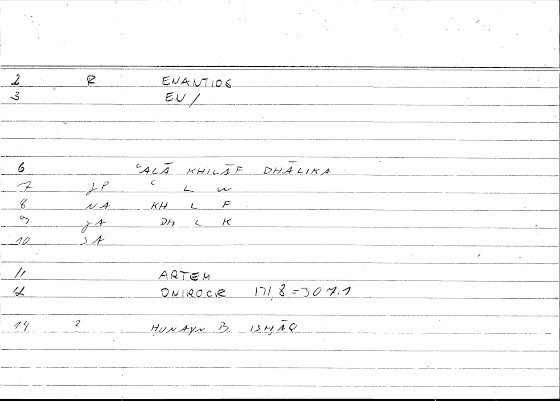 2 R ENANTIOS
3 EN/
6 ʿALĀ KHILĀF DHĀLIKA
7 JP ʿ L W
8 NA KH L F
9 JA DH L K
10 JA
11 ARTEM
12 ONIROCR 171,8 =
14 ? ḤUNAYN B. ISḤĀQ